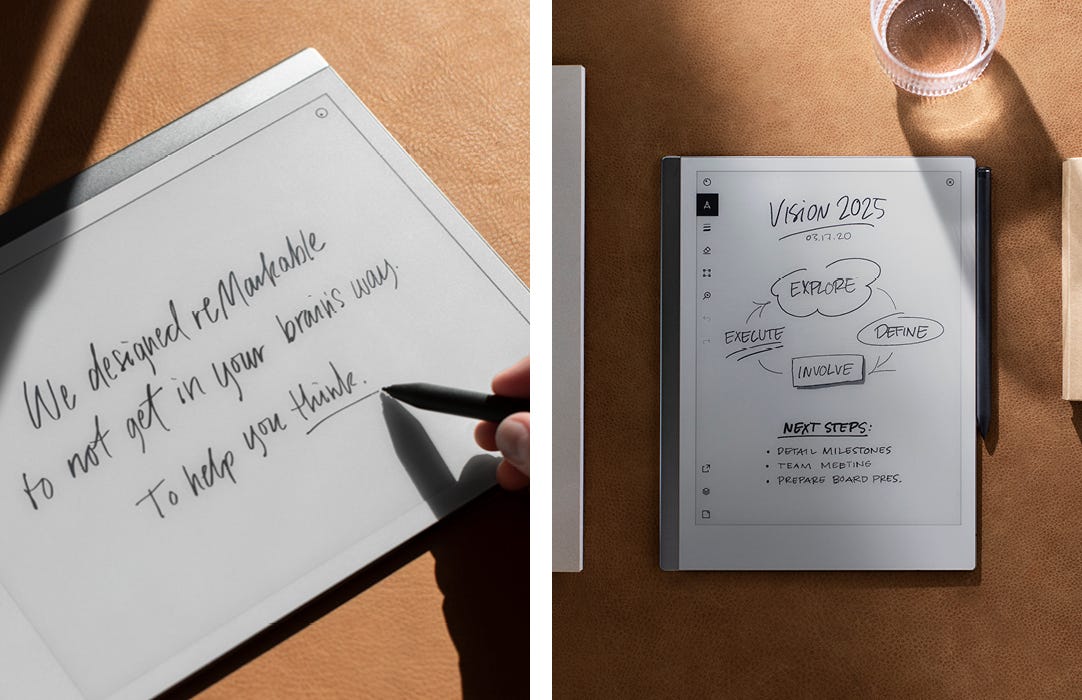 We designed reMarkable
to not get in your brain's way.
To help you think.
Vision 2025
03.17.20
EXPLORE
EXECUTE
DEFINE
INVOLVE
NEXT STEPS:
• DETAIL MILESTONES
• TEAM MEETING
• PREPARE BOARD PRES.